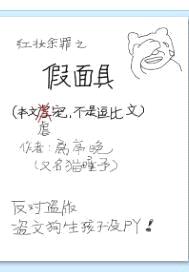 红妆余罪之
假面具
(本文完,不是逗比文)
虐
作者:
(又名猫睡予)
反对盗版
盗文狗生孩子没PY!